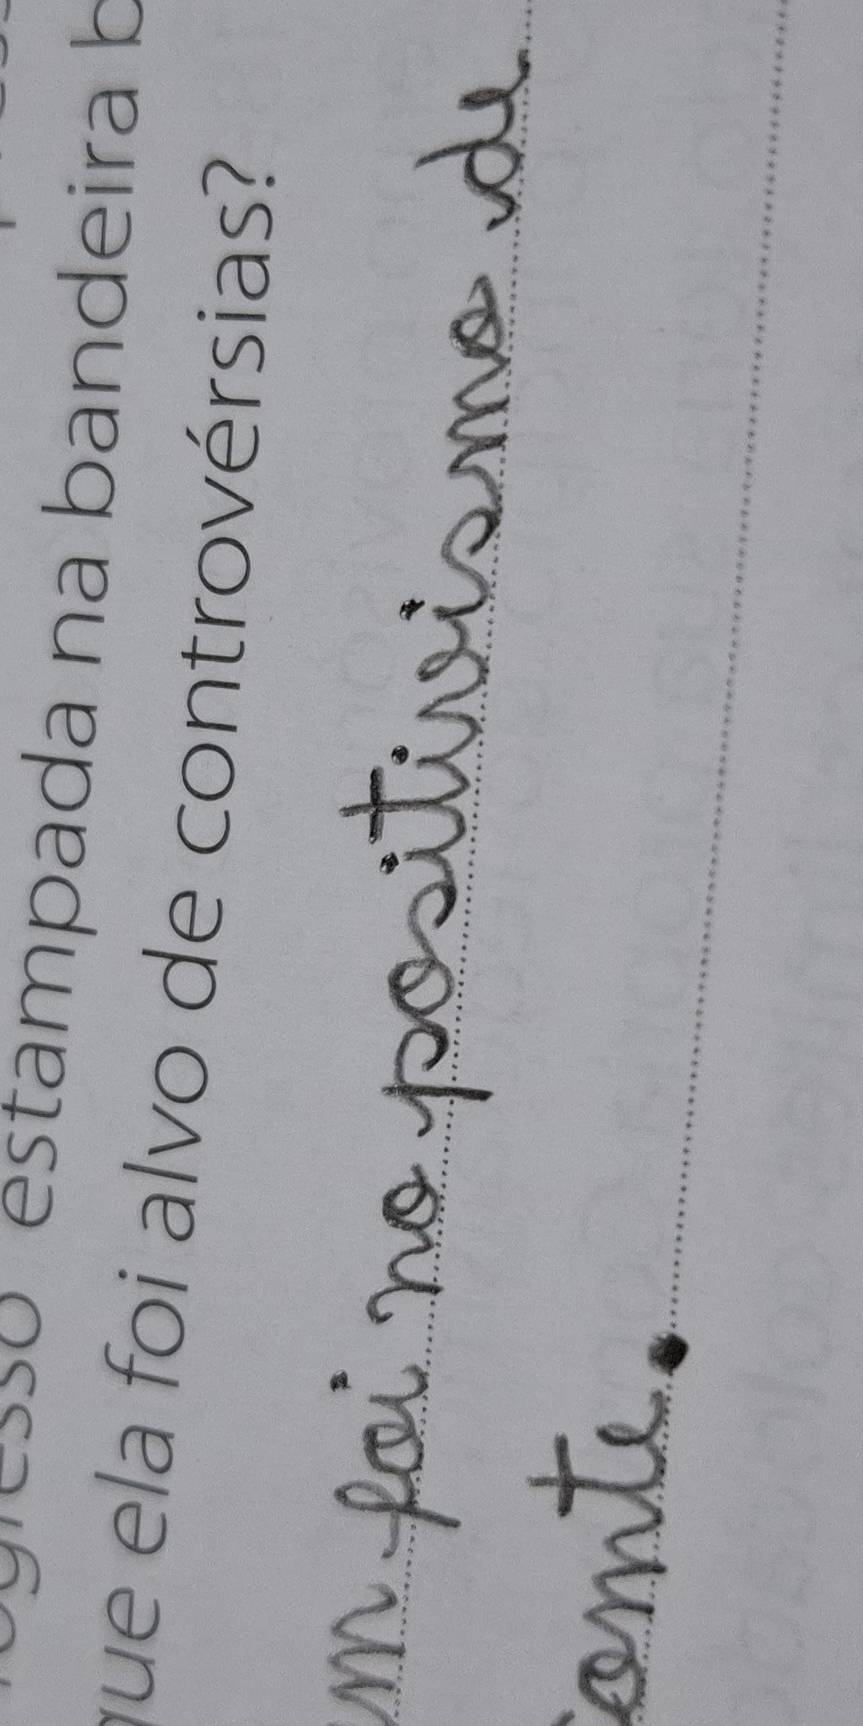 estampada na bandeira
que ela foi alvo de controvérsias?
foi no positivismo de